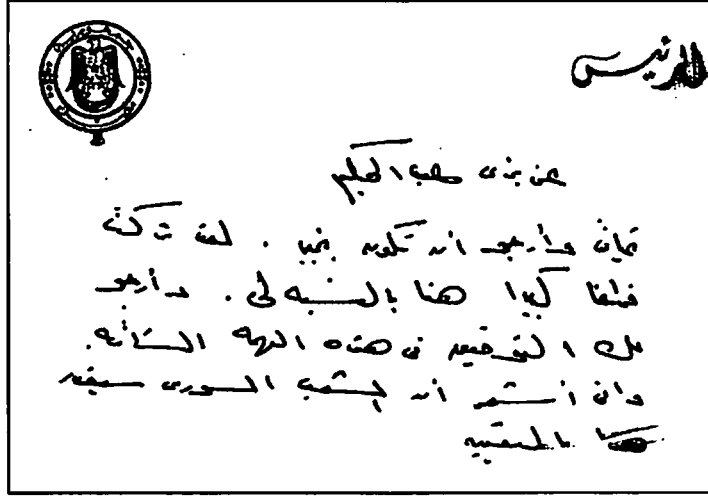 الرئيس
عزيزى عبد الحكيم
تحياتى وأرجو ان تكون بخير . لقد تركت
فراغا كبيرا هنا بالنسبه لى . وأرجو
لك التوفيق فى هذه المهمه الشاقه .
وانى أشعر ان الشعب السورى سيقدر